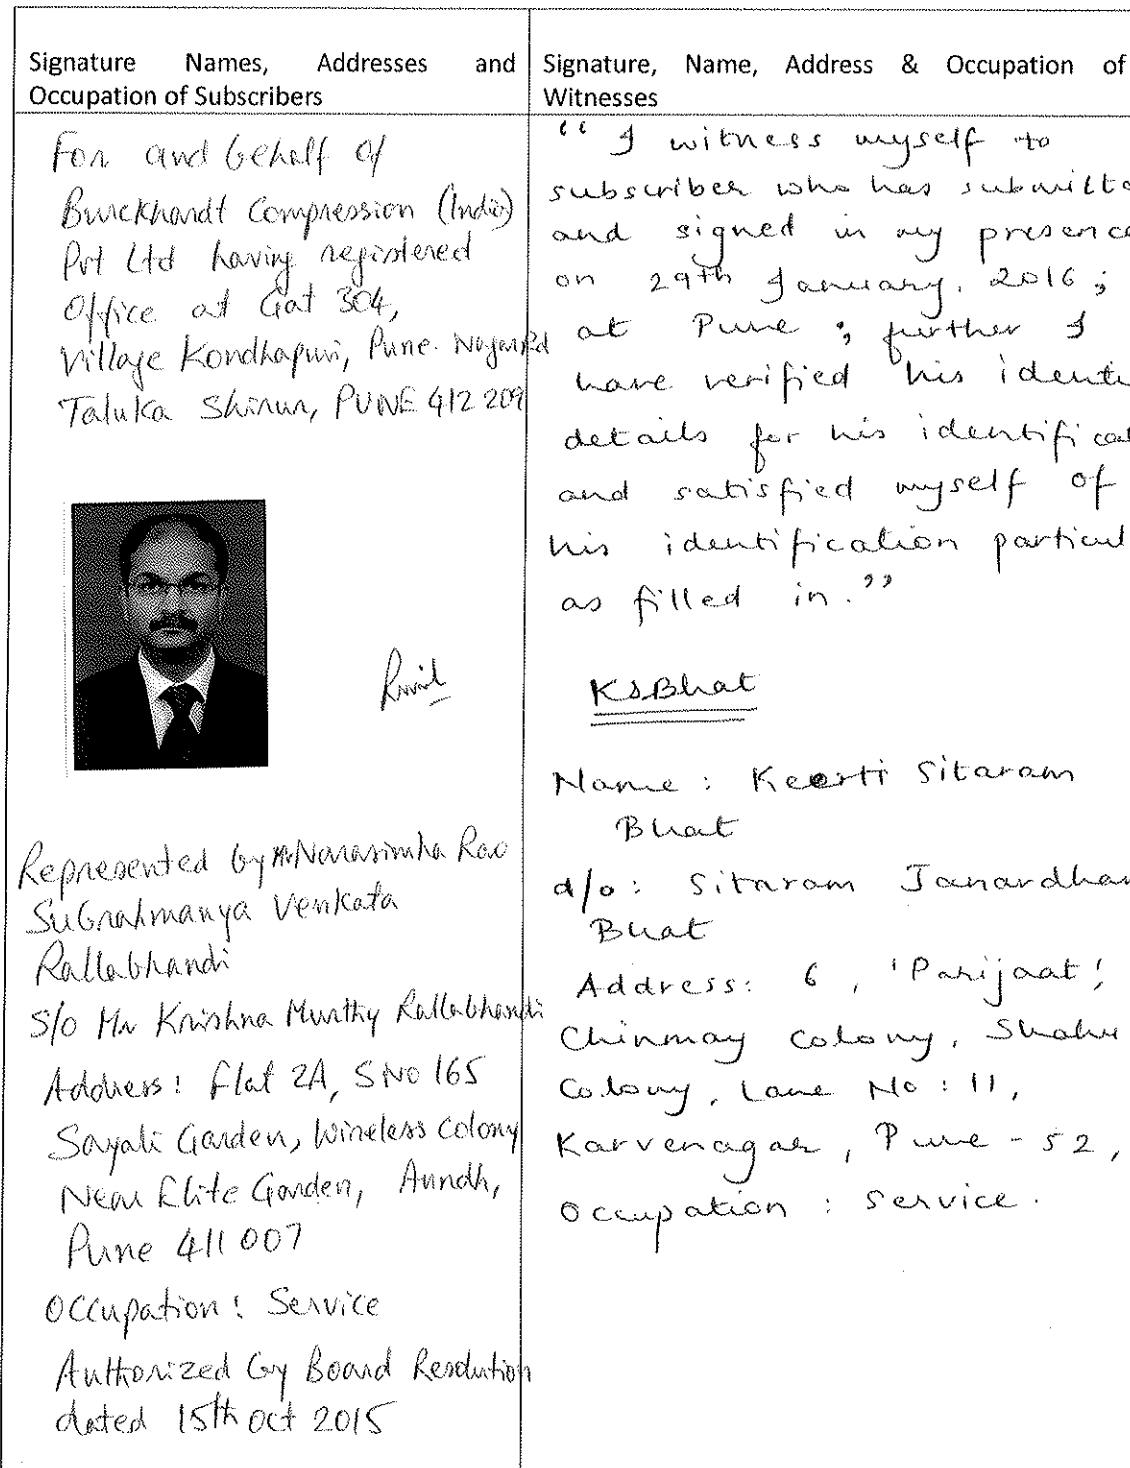 Signature Names, Addresses and
Occupation of Subscribers
For and behalf of
Burckhardt Compression (India)
Pvt Ltd having registered
Office at Gat 304,
Village Kondhapuri, Pune. Nagar Rd
Taluka Shirur, PUNE 412 209
Represented by Mr Narasimha Rao
Subrahmanya Venkata
Rallabhandi
S/o Mr Krishna Murthy Rallabhandi
Address: Flat 2A, S No 165
Sayali Garden, Wireless Colony
Near Elite Garden, Aundh,
Pune 411 007
Occupation: Service
Authorized by Board Resolution
dated 15th Oct 2015
Signature, Name, Address & Occupation of
Witnesses
“I witness myself to
subscriber who has submitte
and signed in my presence
on 29th January, 2016;
at Pune; further I
have verified his identi
details for his identificat
and satisfied myself of
his identification particul
as filled in.”
KSBhat
Name: Keerti Sitaram
Bhat
d/o: Sitaram Janardhan
Bhat
Address: 6, 'Parijaat',
Chinmay Colony, Shahu
Colony, Lane No: 11,
Karvenagar, Pune - 52,
Occupation: Service.